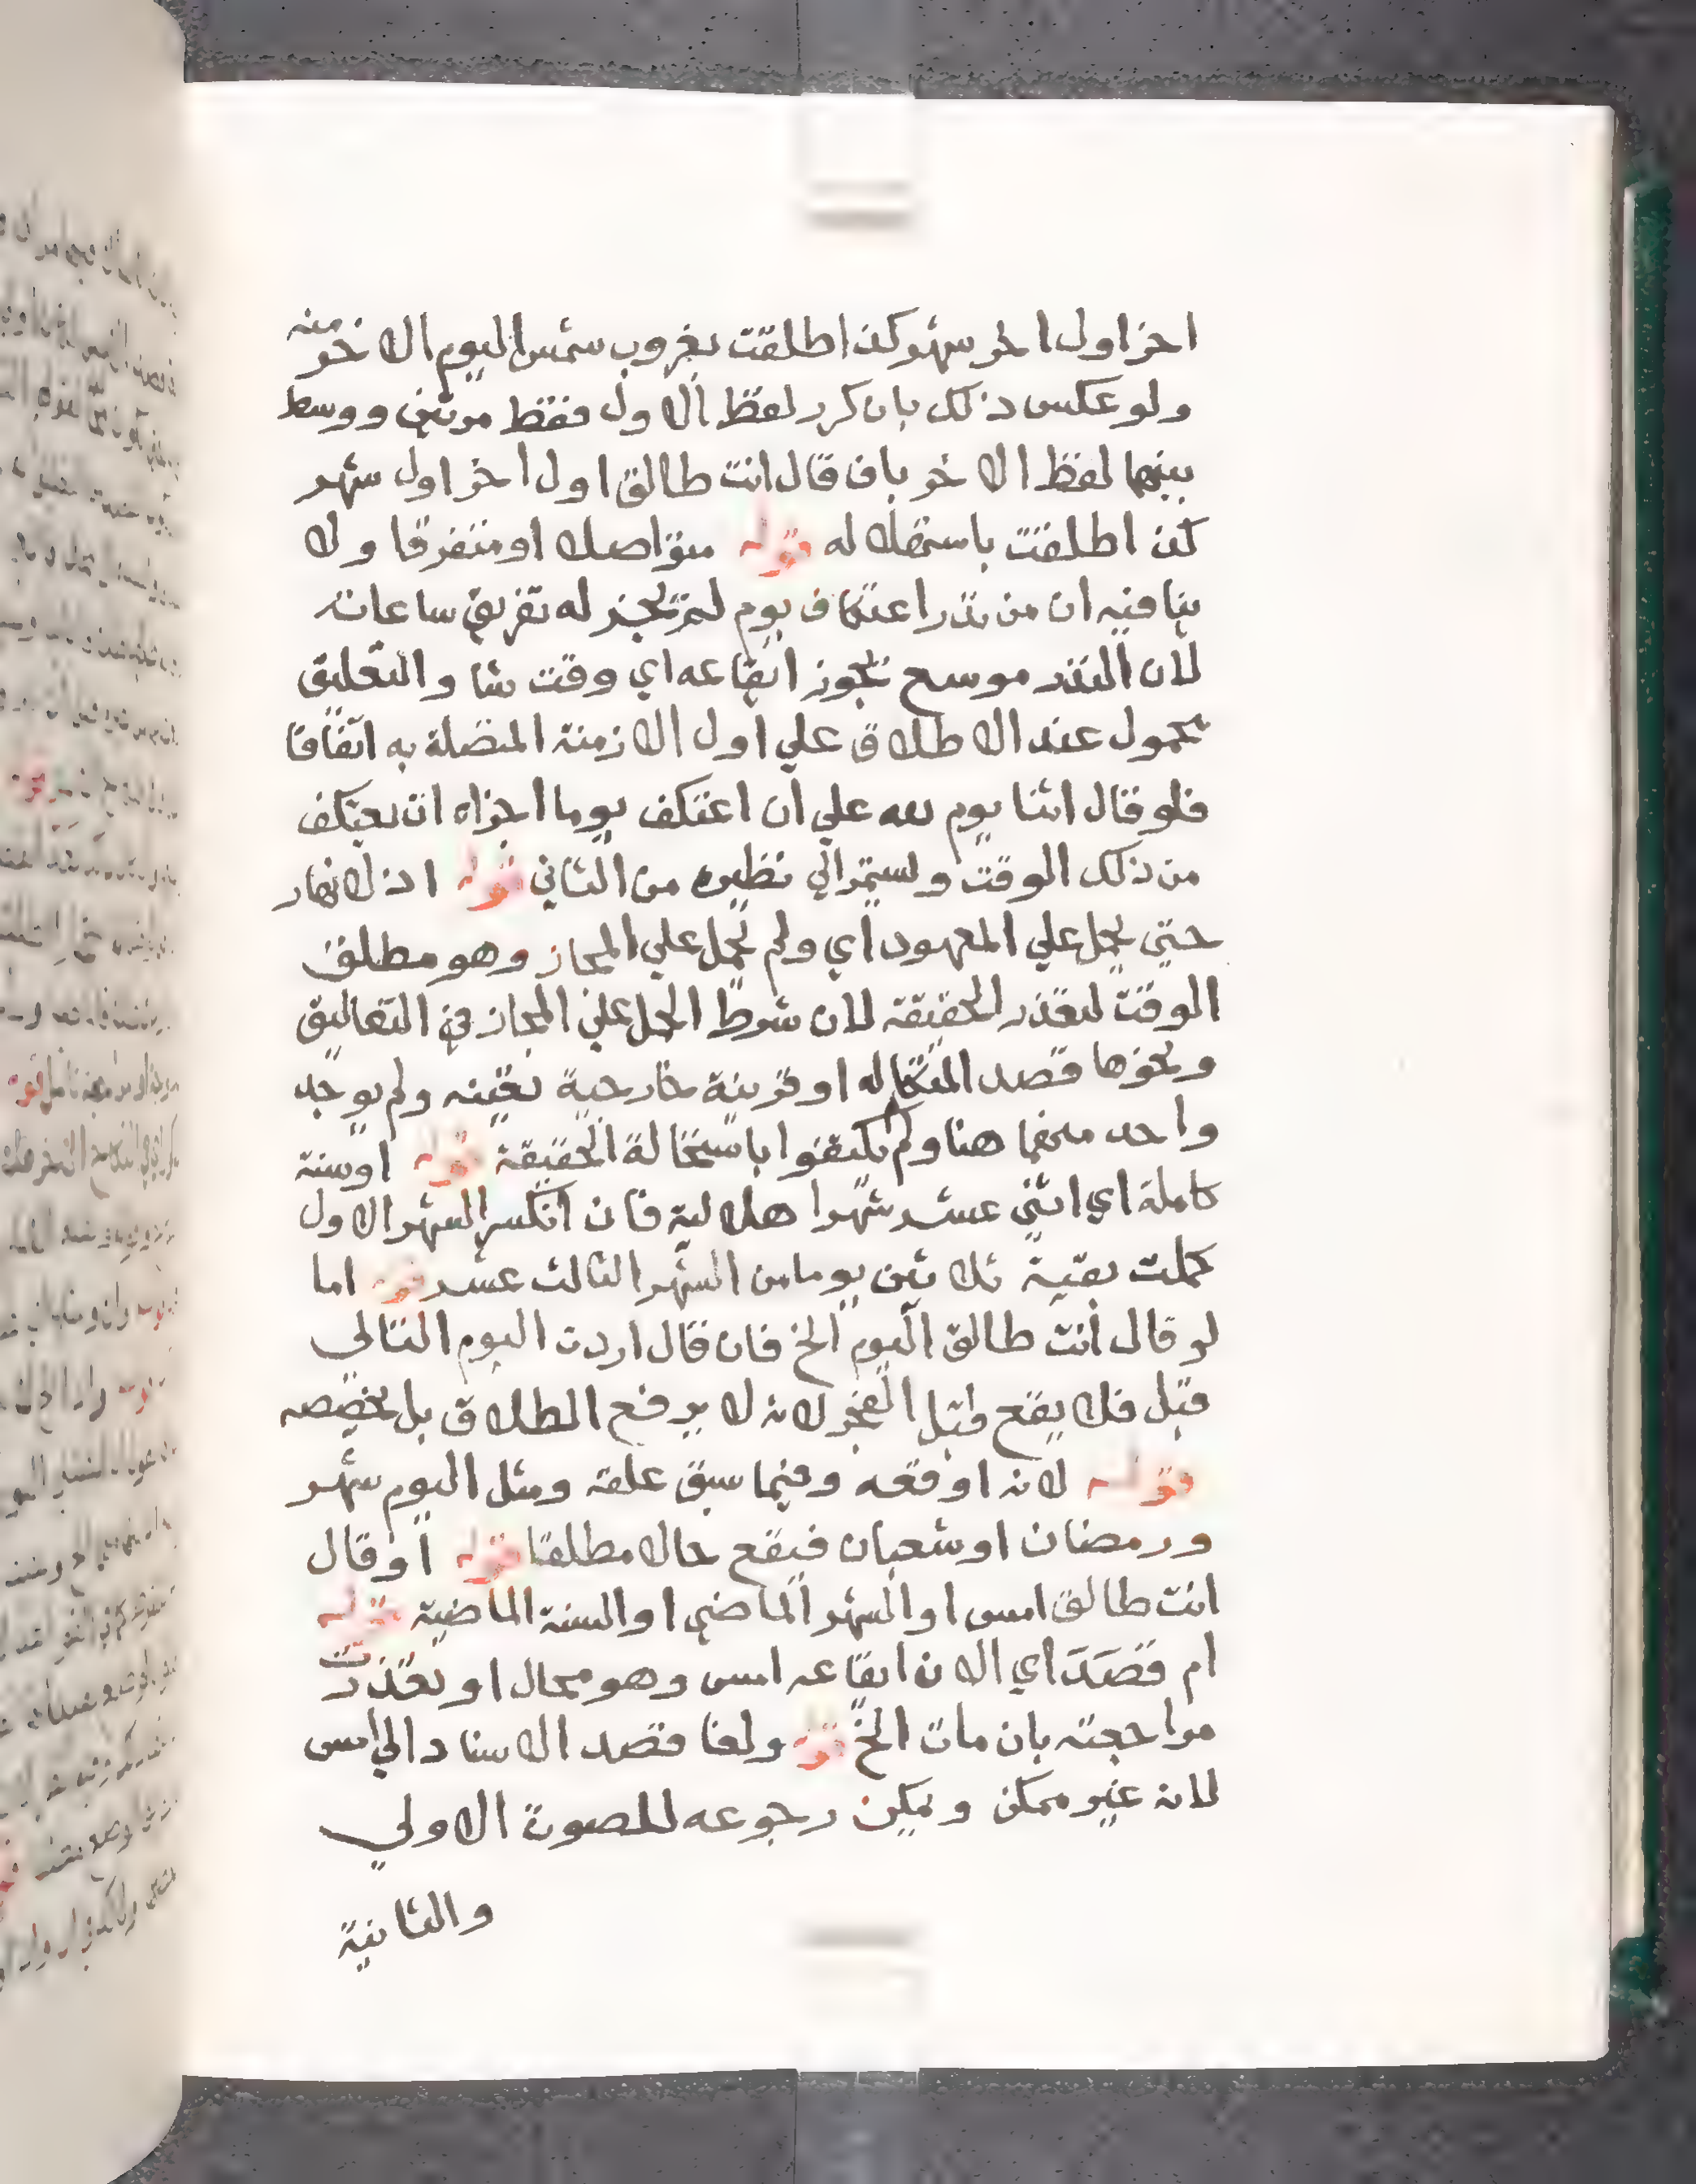 اخر اول اخر شهر كذا طلقت بغروب شمس اليوم الاخر منه
ولو عكس ذلك بان كرر لفظ الاول فقط مرتين ووسط
بينهما لفظ الاخر بان قال انت طالق اول اخر اول شهر
كذا طلقت باستهلاله قوله متواصلا او متفرقا ولا
ينافيه ان من نذر اعتكاف يوم لم يجز له تفريق ساعاته
لان النذر موسع يجوز ايقاعه اي وقت شا والتعليق
محمول عند الاطلاق علي اول الازمنة المتصلة به اتفاقا
فلو قال اثنا يوم لله علي ان اعتكف يوما اجزاه ان يعتكف
من ذلك الوقت ويستمر الي نظيره من الثاني قوله اذ لا نهار
حتي يحمل علي المعهود اي ولم يحمل علي المجاز وهو مطلق
الوقت لتعذر الحقيقة لان شرط الحمل علي المجاز في التعاليق
ونحوها قصد المتكلم له او قرينة خارجية تعينه ولم يوجد
واحد منهما هنا ولم يكتفوا باستحالة الحقيقة قوله او سنة
كاملة اي اثني عشر شهرا هلالية فان انكسر الشهر الاول
كملت بقية ثلاثين يوما من الشهر الثالث عشر قوله اما
لو قال أنت طالق اليوم الخ فان قال اردت اليوم التالي
قبل فلا يقع قبل الفجر لانه لا يرفع الطلاق بل يخصصه
قوله لانه اوقعه وفيما سبق علقه ومثل اليوم شهر
ورمضان او شعبان فيقع حالا مطلقا قوله او قال
انت طالق امس او الشهر الماضي او السنة الماضية قوله
ام قصد اي الان ايقاعه امس وهو محال او تعذرت
مراجعته بان مات الخ قوله ولغا قصد الاسناد الي امس
لانه غير ممكن ويمكن رجوعه للصورة الاولي
والثانية